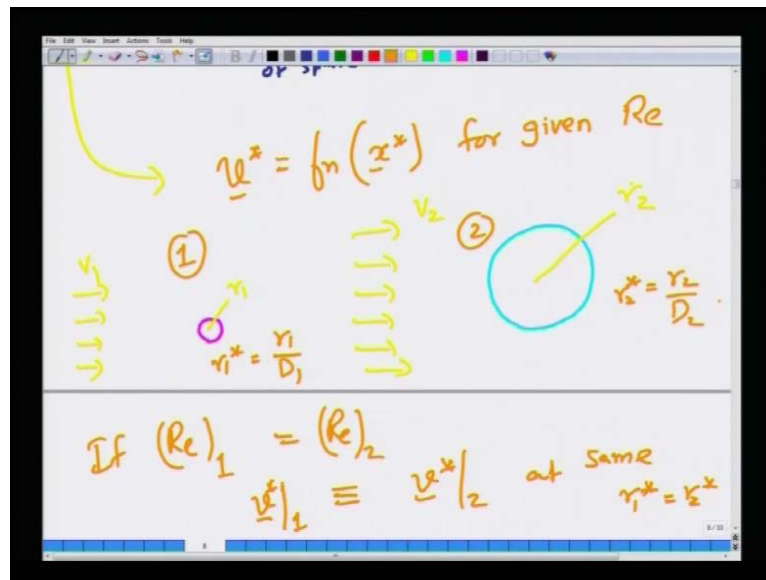 File Edit View Insert Actions Tools Help
v* = fn (x*) for given Re
V1 ① r1 r1* = r1/D1
V2 ② r2 r2* = r2/D2
If (Re)1 = (Re)2
v*|1 ≡ v*|2 at same r1* = r2*